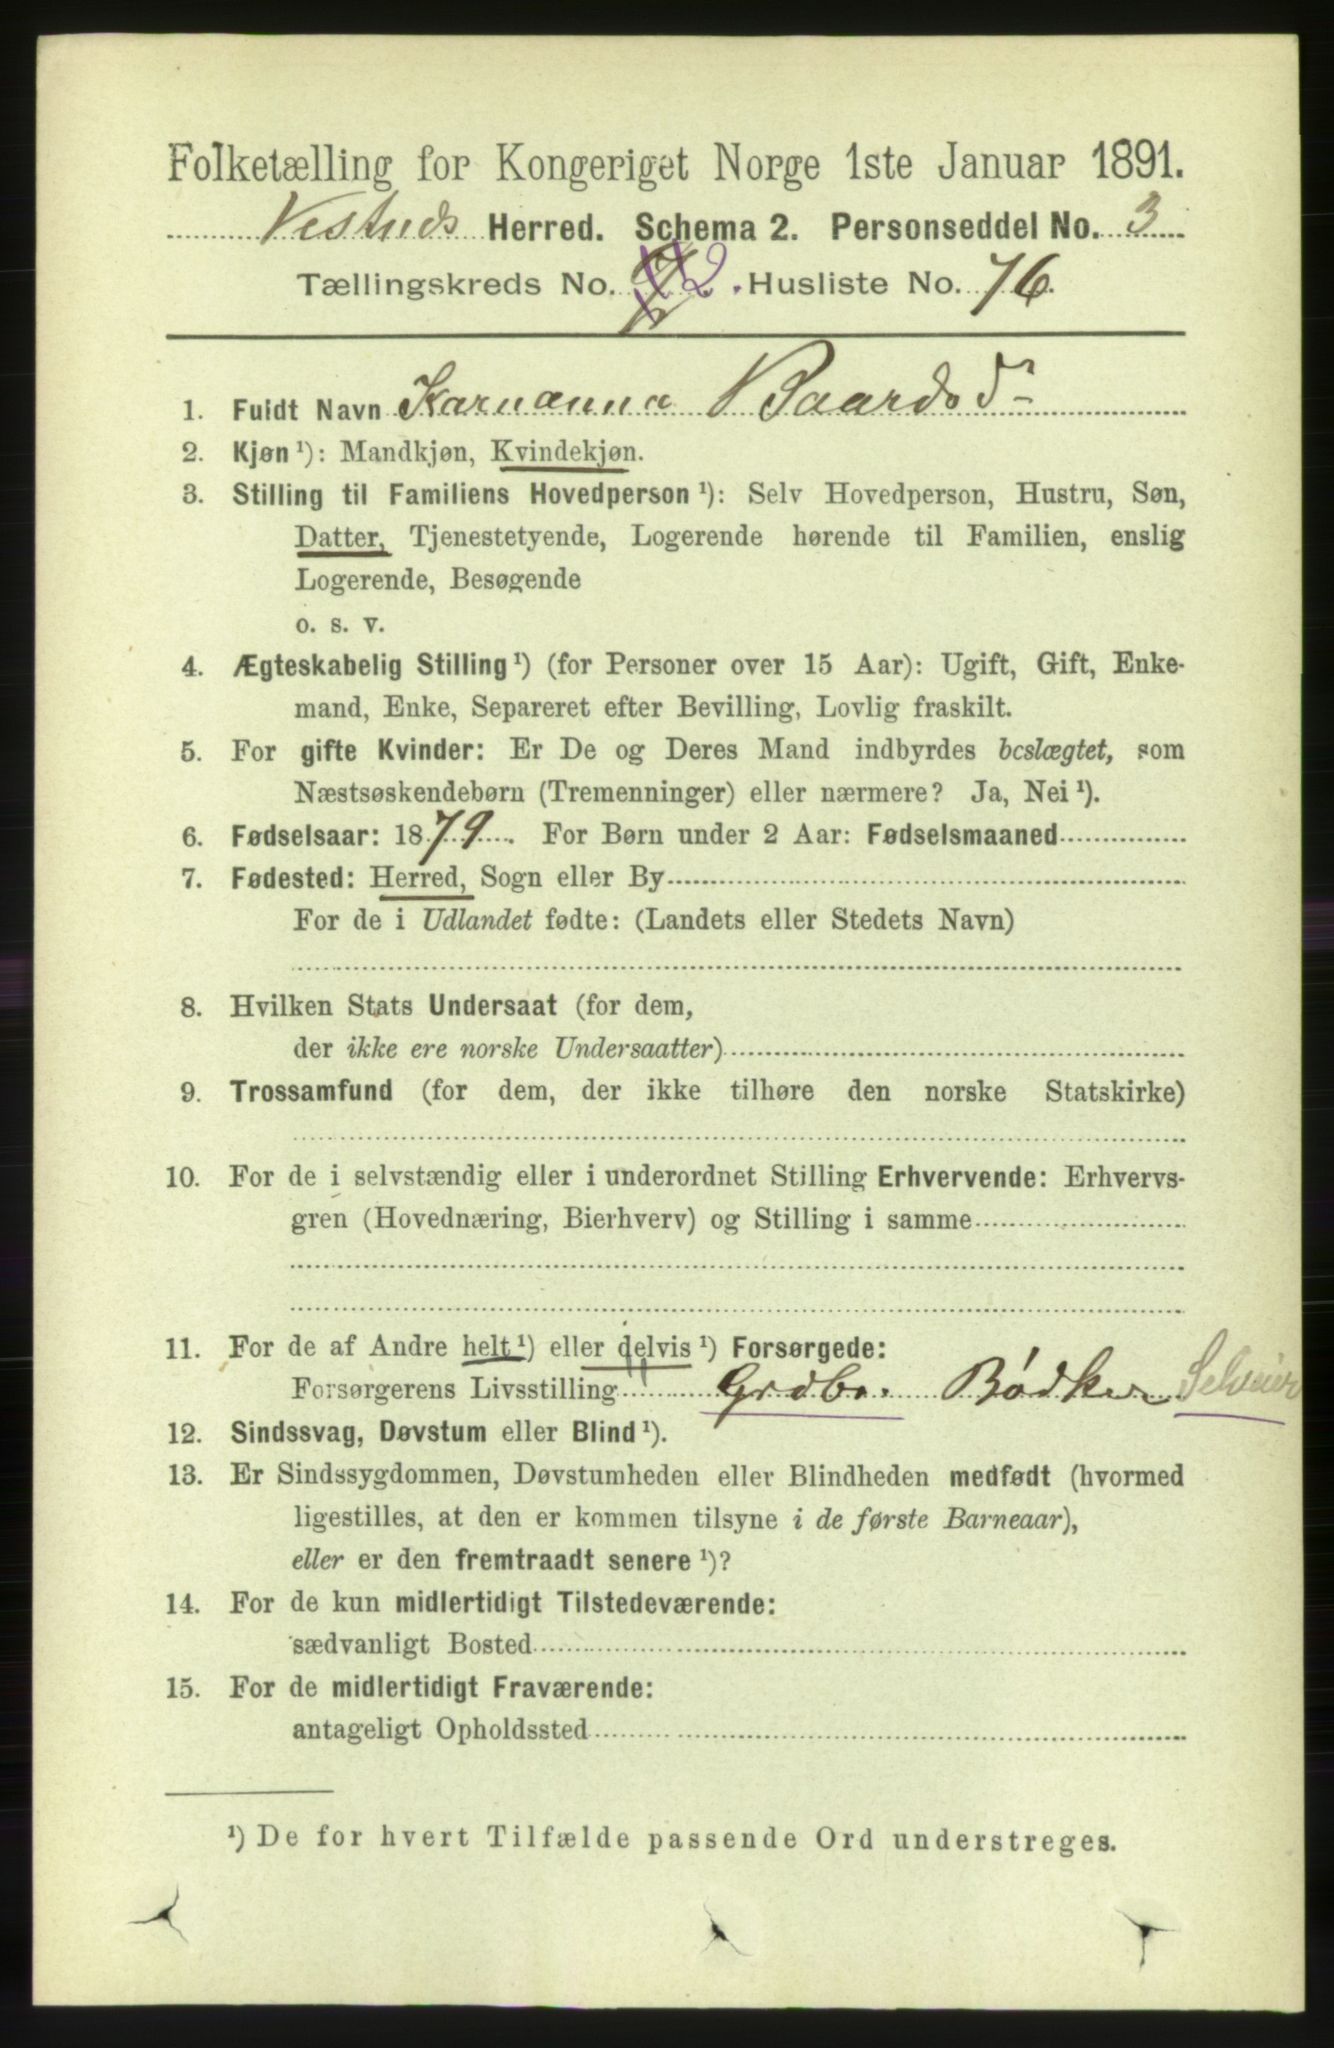 Folketælling for Kongeriget Norge 1ste Januar 1891.
Vestnes Herred. Schema 2. Personseddel No. 3
Tællingskreds No. 2. Husliste No. 76.
1. Fuldt Navn Karnanna Baardsdr
2. Kjøn ¹): Mandkjøn, Kvindekjøn.
3. Stilling til Familiens Hovedperson ¹): Selv Hovedperson, Hustru, Søn,
Datter, Tjenestetyende, Logerende hørende til Familien, enslig
Logerende, Besøgende
o. s. v.
4. Ægteskabelig Stilling ¹) (for Personer over 15 Aar): Ugift, Gift, Enke-
mand, Enke, Separeret efter Bevilling, Lovlig fraskilt.
5. For gifte Kvinder: Er De og Deres Mand indbyrdes beslægtet, som
Næstsøskendebørn (Tremenninger) eller nærmere? Ja, Nei ¹).
6. Fødselsaar: 1879. For Børn under 2 Aar: Fødselsmaaned
7. Fødested: Herred, Sogn eller By
For de i Udlandet fødte: (Landets eller Stedets Navn)
8. Hvilken Stats Undersaat (for dem,
der ikke ere norske Undersaatter)
9. Trossamfund (for dem, der ikke tilhøre den norske Statskirke)
10. For de i selvstændig eller i underordnet Stilling Erhvervende: Erhvervs-
gren (Hovednæring, Bierhverv) og Stilling i samme
11. For de af Andre helt ¹) eller delvis ¹) Forsørgede:
Forsørgerens Livsstilling Grdbr. Bødker Selveier
12. Sindssvag, Døvstum eller Blind ¹).
13. Er Sindssygdommen, Døvstumheden eller Blindheden medfødt (hvormed
ligestilles, at den er kommen tilsyne i de første Barneaar),
eller er den fremtraadt senere ¹)?
14. For de kun midlertidigt Tilstedeværende:
sædvanligt Bosted
15. For de midlertidigt Fraværende:
antageligt Opholdssted
¹) De for hvert Tilfælde passende Ord understreges.